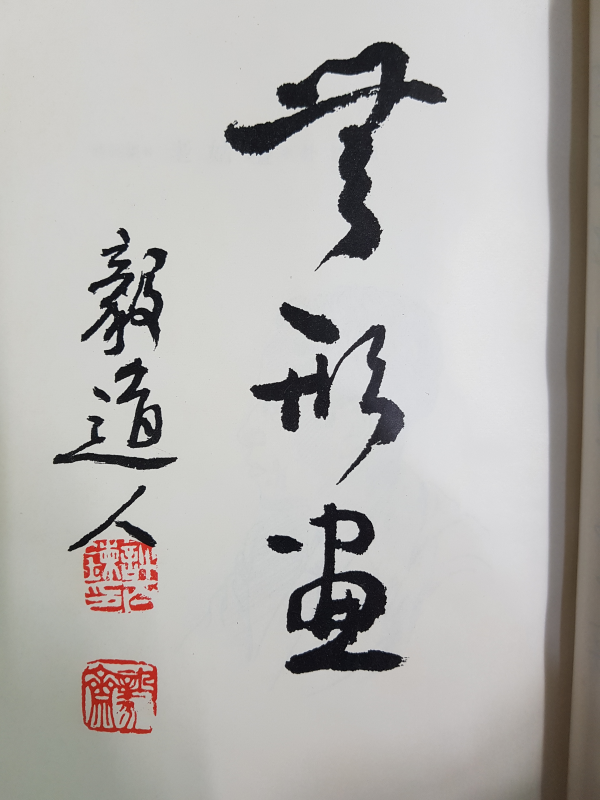 無形畫
毅道人